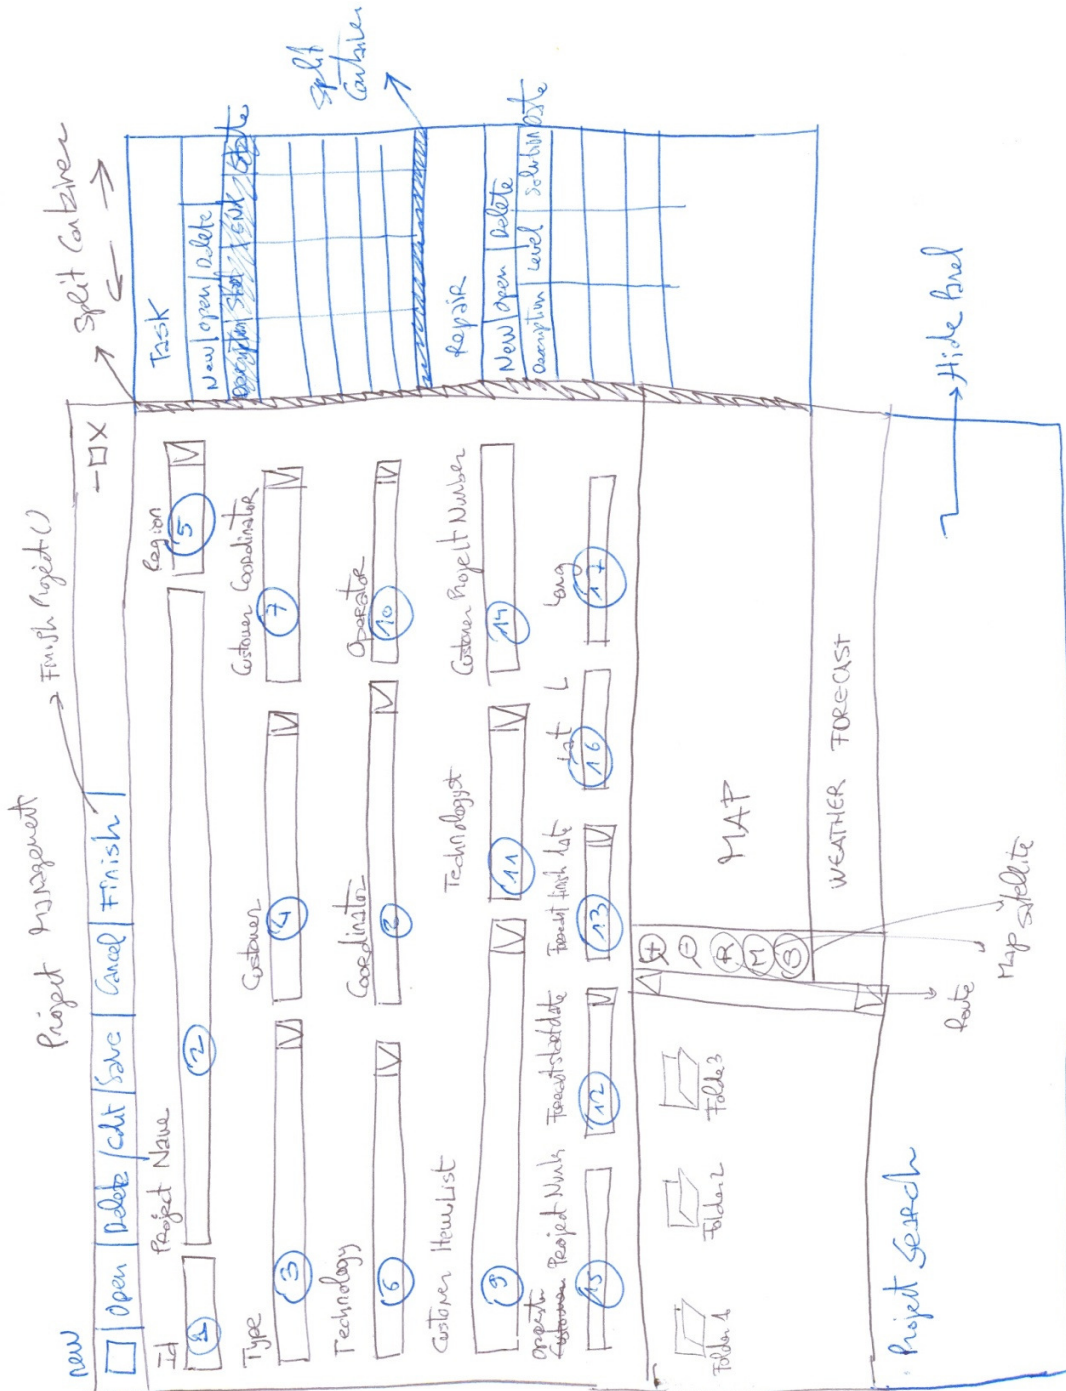 Project Management
Finish Project()
new
Open Delete Edit Save Cancel Finish
- □ X
Split Container
Id
Project Name
Region
1
2
5
Type
Customer
Customer Coordinator
3
4
7
Technology
Coordinator
Operator
6
8
10
Customer Item List
Technologyst
Customer Project Number
9
11
14
Operator Customer Project Numb
Forecast start date
Forecast finish date
Lat L
Long
15
12
13
16
17
Folder 1
Folder 2
Folder 3
+
-
R
M
S
MAP
WEATHER FORECAST
Project Search
Route
Map
Satellite
Hide Panel
Task
New Open Delete
Description Start
State
Split Container
Repair
New Open Delete
Description Level Solution Date